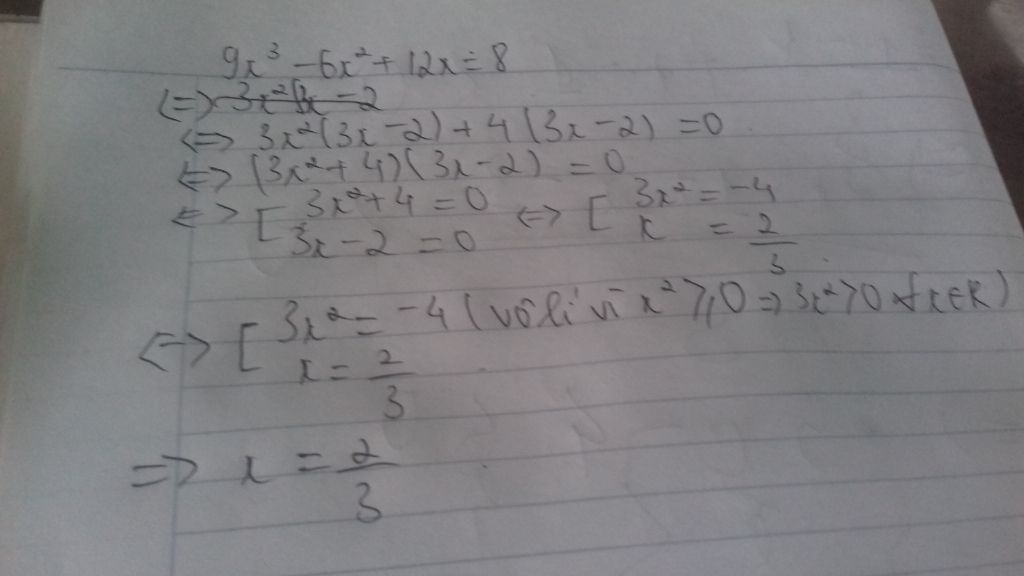 9x³ - 6x² + 12x = 8
⇔ 3x²(3x - 2) + 4(3x - 2) = 0
⇔ (3x² + 4)(3x - 2) = 0
⇔ [ 3x² + 4 = 0 ⇔ [ 3x² = -4
3x - 2 = 0 x = 2/3
⇔ [ 3x² = -4 (vô lí vì x² ≥ 0 ⇒ 3x² > 0 ∀x∈R)
x = 2/3
⇒ x = 2/3